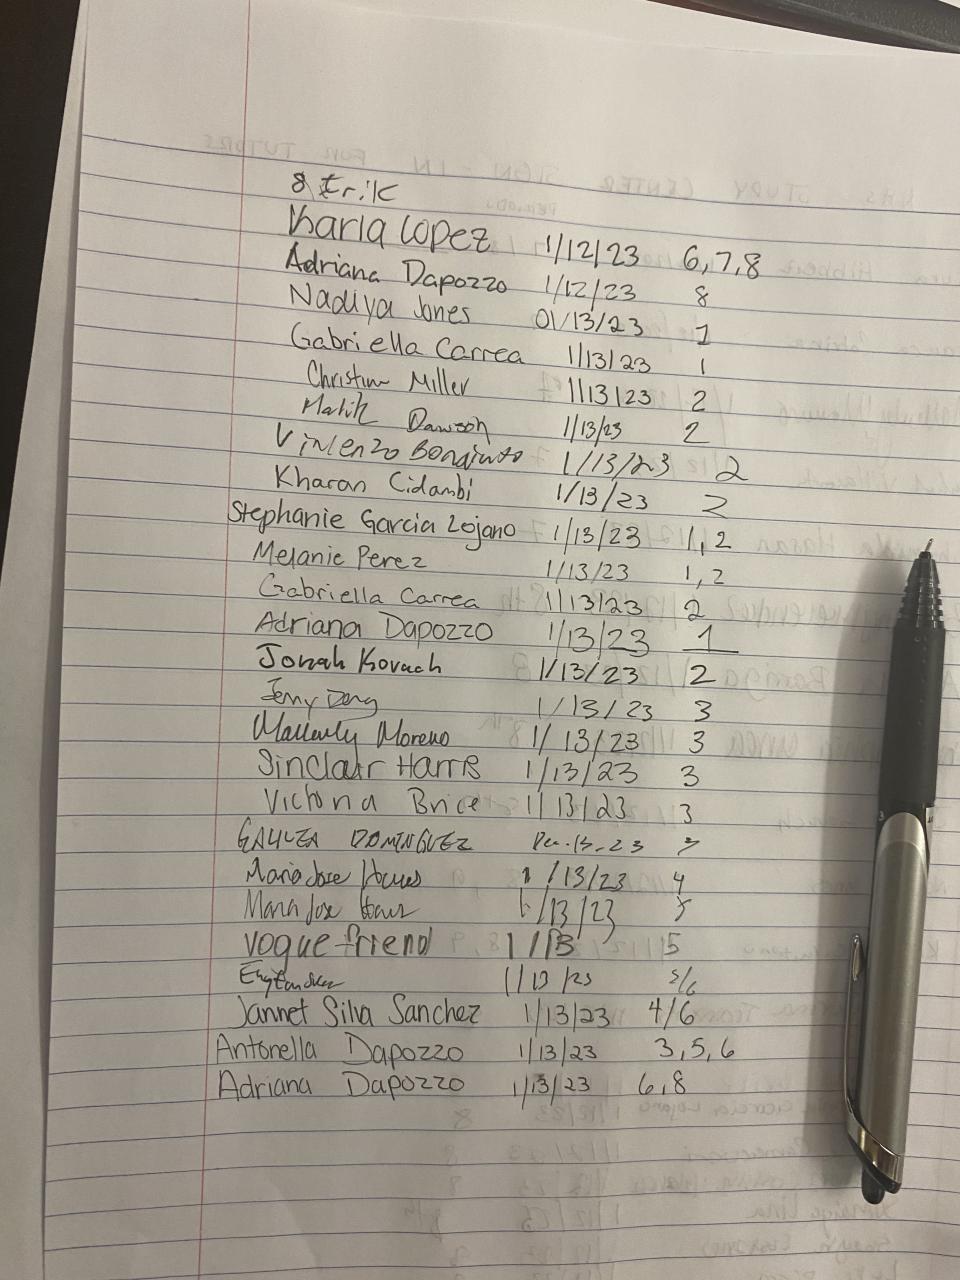 8 Erik
Karla Lopez 1/12/23 6,7,8
Adriana Dapozzo 1/12/23 8
Nadiya Jones 01/13/23 1
Gabriella Carrea 1/13/23 1
Christine Miller 1/13/23 2
Malik Dawson 1/13/23 2
Vincenzo 1/13/23 2
Kharan Cidambi 1/13/23 2
Stephanie Garcia Lojano 1/13/23 1,2
Melanie Perez 1/13/23 1,2
Gabriella Carrea 1/13/23 2
Adriana Dapozzo 1/13/23 1
Jonah Kovach 1/13/23 2
1/13/23 3
Moreno 1/13/23 3
Sinclair Harris 1/13/23 3
Victoria Brice 1/13/23 3
DOMINGUEZ
Maria Jose 1/13/23 4
Maria Jose /13/23 5
vogue friend 1/13 5
1/13/23 5/6
Jannet Silva Sanchez 1/13/23 4/6
Antonella Dapozzo 1/13/23 3,5,6
Adriana Dapozzo 1/13/23 6,8